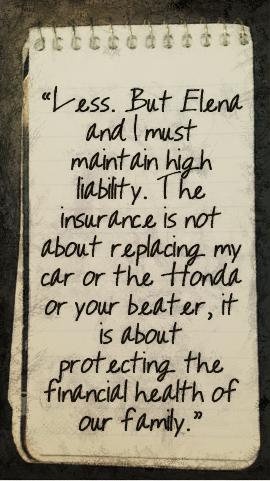 “Less. But Elena
and I must
maintain high
liability. The
insurance is not
about replacing my
car or the Honda
or your beater, it
is about
protecting the
financial health of
our family.”